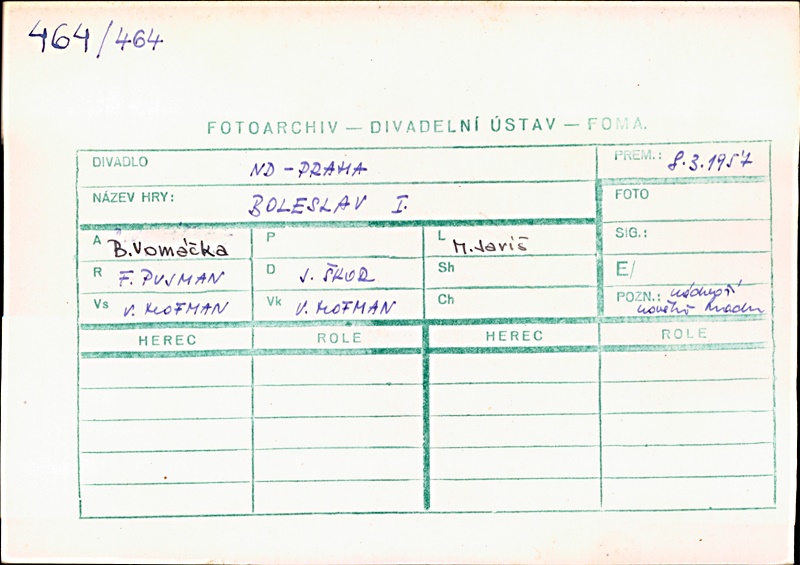 464/464
FOTOARCHIV — DIVADELNÍ ÚSTAV — FOMA.
DIVADLO ND - PRAHA PREM.: 8.3.1957
NÁZEV HRY: BOLESLAV I. FOTO
A B. Vomáčka P L M. Jariš SIG.:
R F. PUJMAN D J. ŠKOR Sh E/
Vs V. HOFMAN Vk V. HOFMAN Ch POZN.: nádvoří
hradu
HEREC ROLE HEREC ROLE